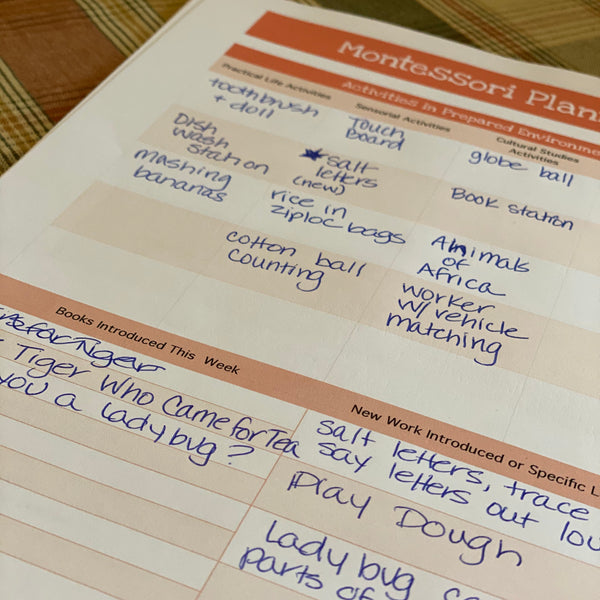 Montessori Plan
Activities in Prepared Environme
Practical Life Activities
toothbrush
+ doll
Dish
wash
station
mashing
bananas
Sensorial Activities
Touch
Board
★ salt
letters
(new)
rice in
ziploc bags
cotton ball
counting
Cultural Studies
Activities
globe ball
Book station
Animals
of
Africa
worker
w/ vehicle
matching
Books Introduced This Week
Tiger Who Came for Tea
you a ladybug?
New Work Introduced or Specific L
salt letters, trace
say letters out lou
Play Dough
Ladybug
parts of